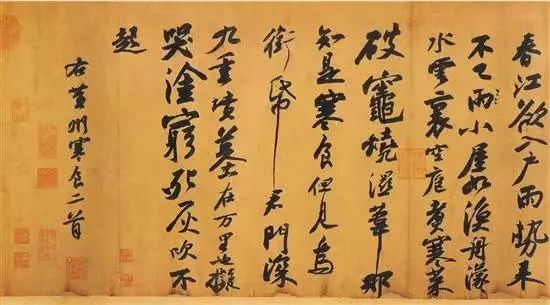 春江欲入戶雨勢来
不已雨小屋如漁舟濛
水雲裏空庖煮寒菜
破竈燒濕葦那
知是寒食但見烏
銜帋君門深
九重墳墓在万里也擬
哭塗窮死灰吹不
起
右黄州寒食二首